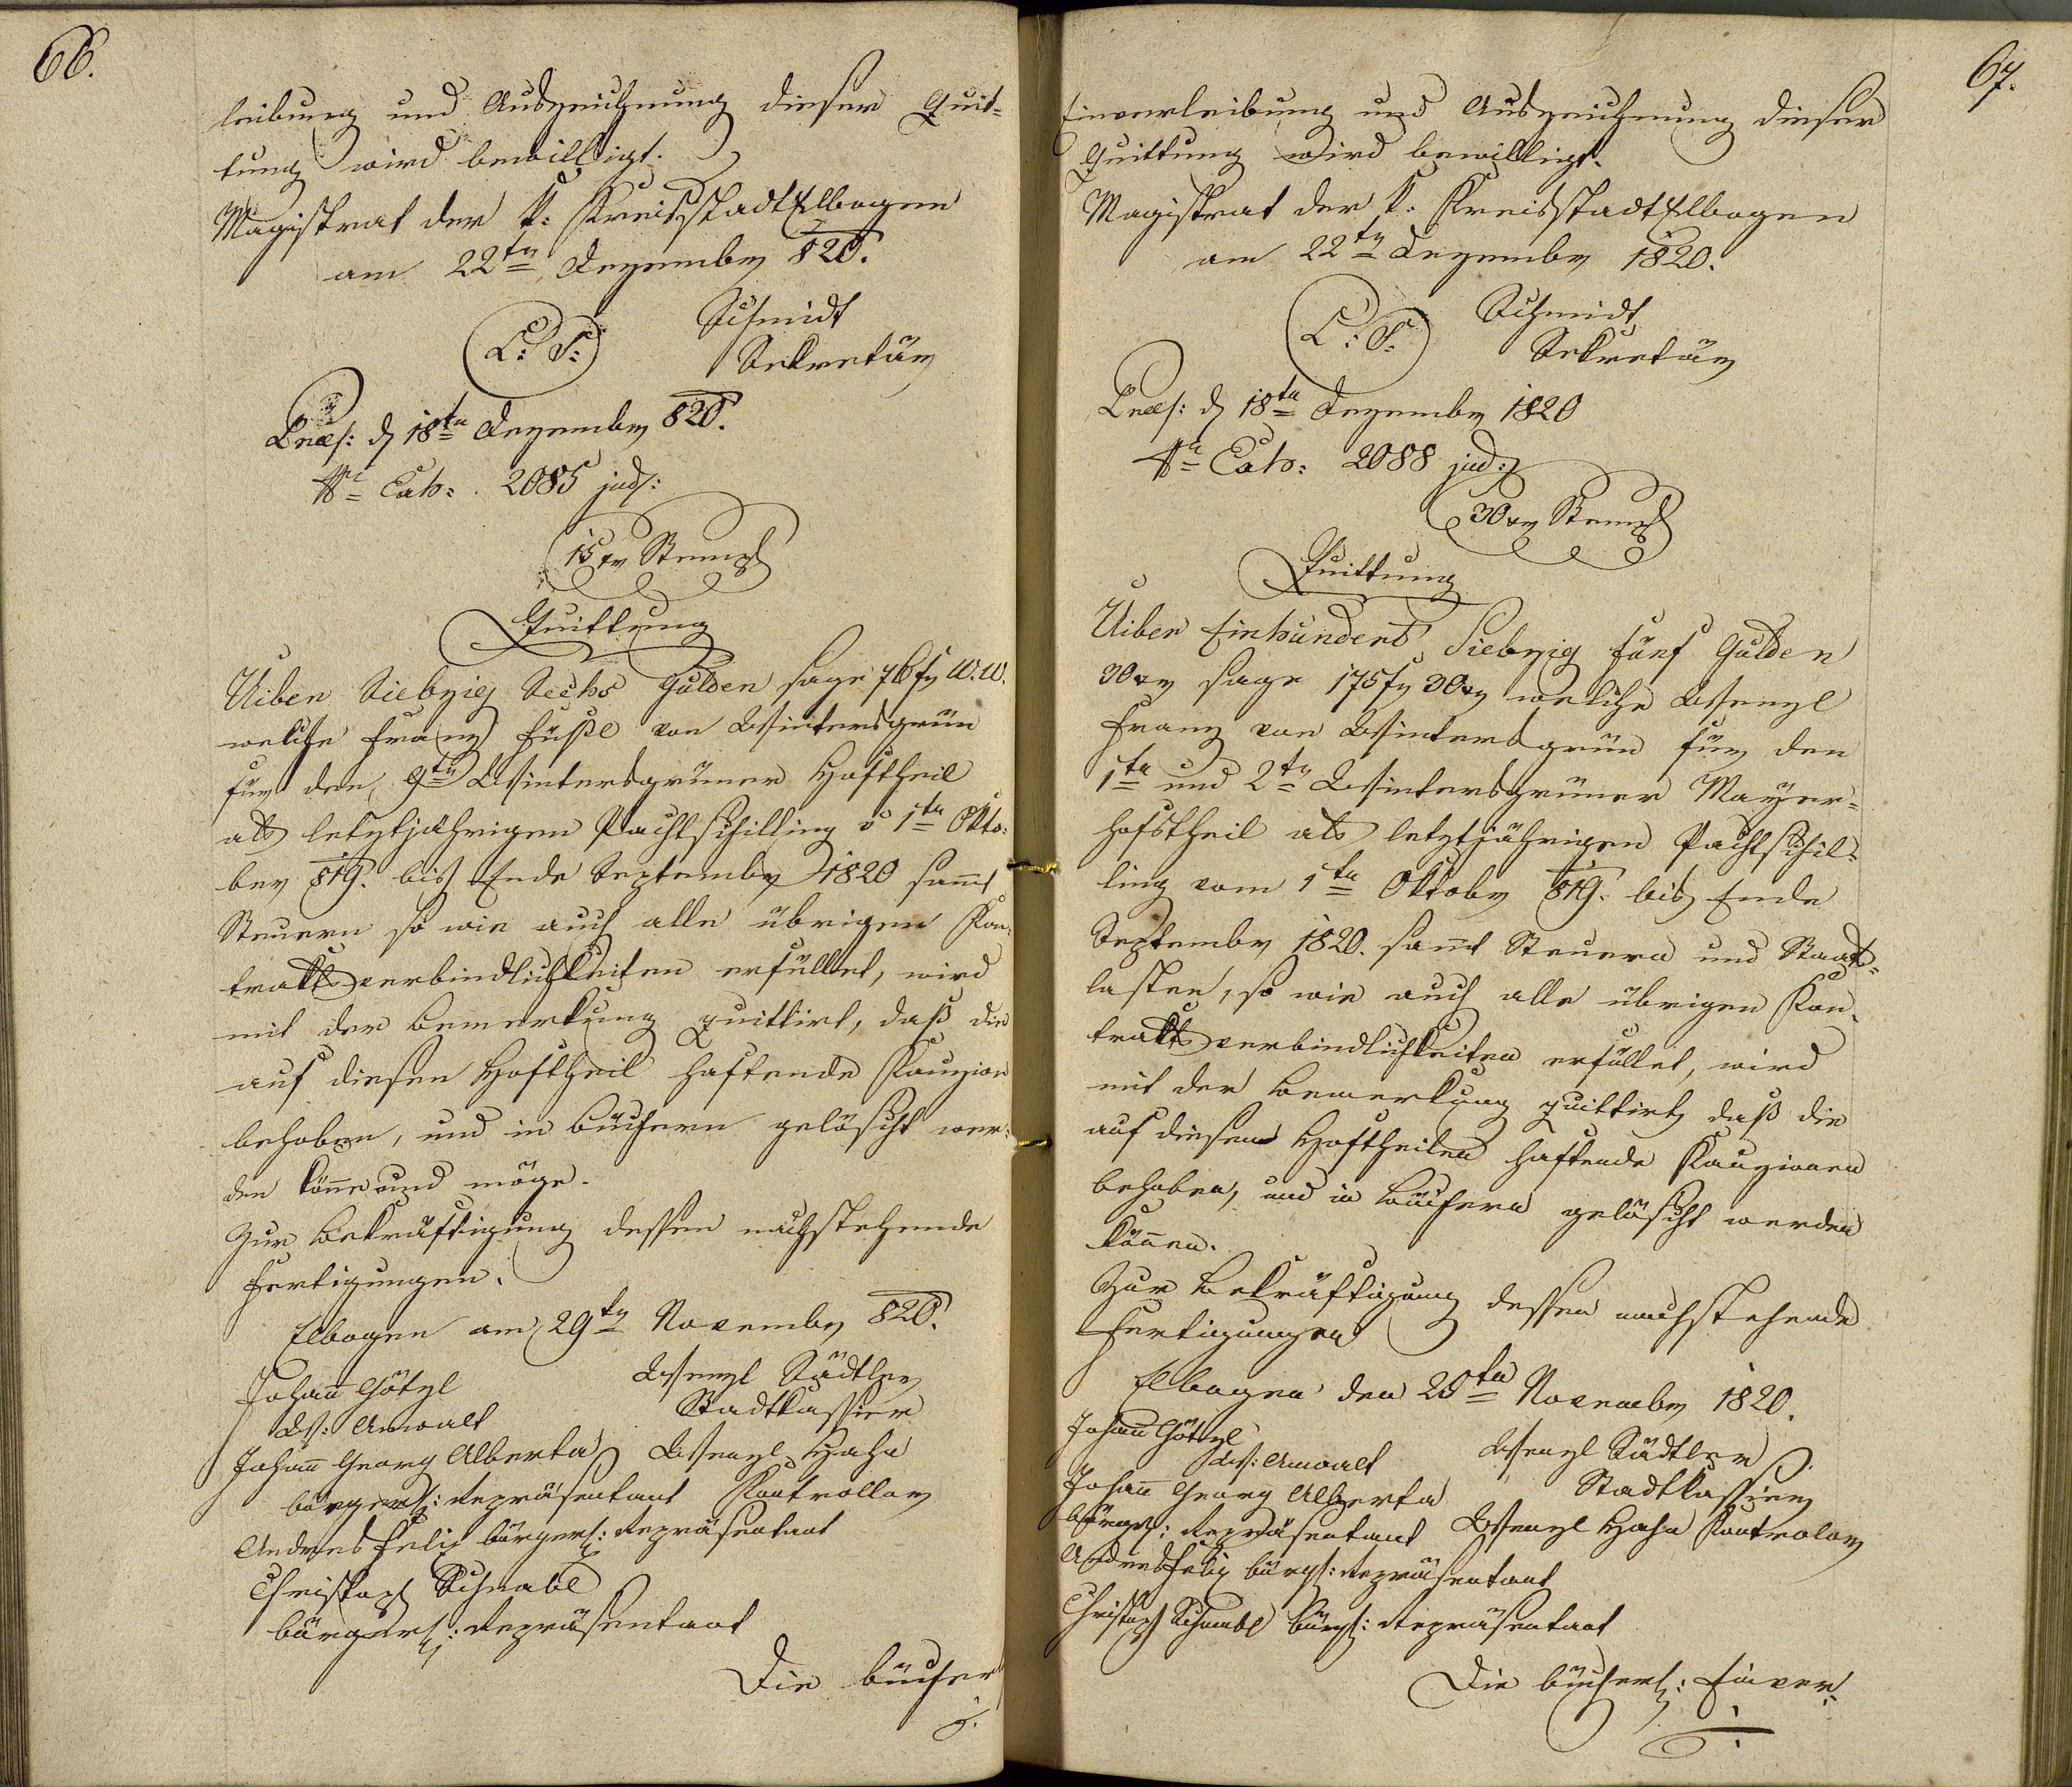 66.
leibung und Auszeichnung dieser Quit-
tung wird bewilligt.
Magistrat der k: Kreisstadt Elbogen
am 22tn Dezember 820.
L: S:
Schmidt
Sekretär
Praes: d 18tn Dezember 820.
Nr Exh: 2085 jud:
15 xr Stempl
Quittung
Uiber Siebzig Sechs Gulden sage 76 fr W. W.
welche Franz Füßl von Wintersgrün
für den 9tn Wintersgrüner Hoftheil
als letztjährigen Pachtschilling v 1tn Okto-
ber 819. bis Ende September 1820 samt
Steuern so wie auch alle übrigen Kon-
traktsverbindlichkeiten erfüllet, wird
mit der Bemerkung quittirt, daß die
auf diesen Hoftheil haftende Kauzion
behoben, und in Büchern gelöscht wer-
den könne und möge.
Zur Bekräftigung dessen nachstehende
Fertigungen.
Elbogen am 29tn November 820.
Johann Götzl
Ws: Anwalt
Wenzl Städtler
Stadtkassier
Johann Georg Alberta
bürgerl: Repräsentant
Wenzl Hahn
Kontrollor
Andres Felix bürgerl: Repräsentant
Christoph Schnabl
bürgerl: Repräsentant
Die bücher
67.
Einverleibung und Auszeichnung dieser
Quittung wird bewilligt.
Magistrat der k: Kreisstadt Elbogen
am 22tn Dezember 1820.
L: S:
Schmidt
Sekretär
Praes: d 18tn Dezember 1820
Nr Exh: 2088 jud:
30 xr Stempl
Quittung
Uiber Einhundert Siebzig fünf Gulden
30 xr sage 175 fr 30 xr welche Wenzl
Franz von Wintersgrün für den
1tn und 2tn Wintersgrüner Mayer-
hofstheil als letztjährigen Pachtschil-
ling vom 1tn Oktober 819. bis Ende
September 1820. samt Steuern und Staats-
lasten, so wie auch alle übrigen Kon-
traktsverbindlichkeiten erfüllet, wird
mit der Bemerkung quittirt, daß die
auf diesen Hoftheilen haftende Kauzionen
behoben, und in Büchern gelöscht werden
können.
Zur Bekräftigung dessen nachstehende
Fertigungen
Elbogen den 20tn November 1820.
Johann Götzl
Ws: Anwalt
Wenzl Städtler
Stadtkassier
Johann Georg Alberta
bürgl: Repräsentant
Wenzl Hahn Kontrolor
Andres Felix bürgl: Repräsentant
Christoph Schnabl bürgl: Repräsentant
Die bücherl: Einver-